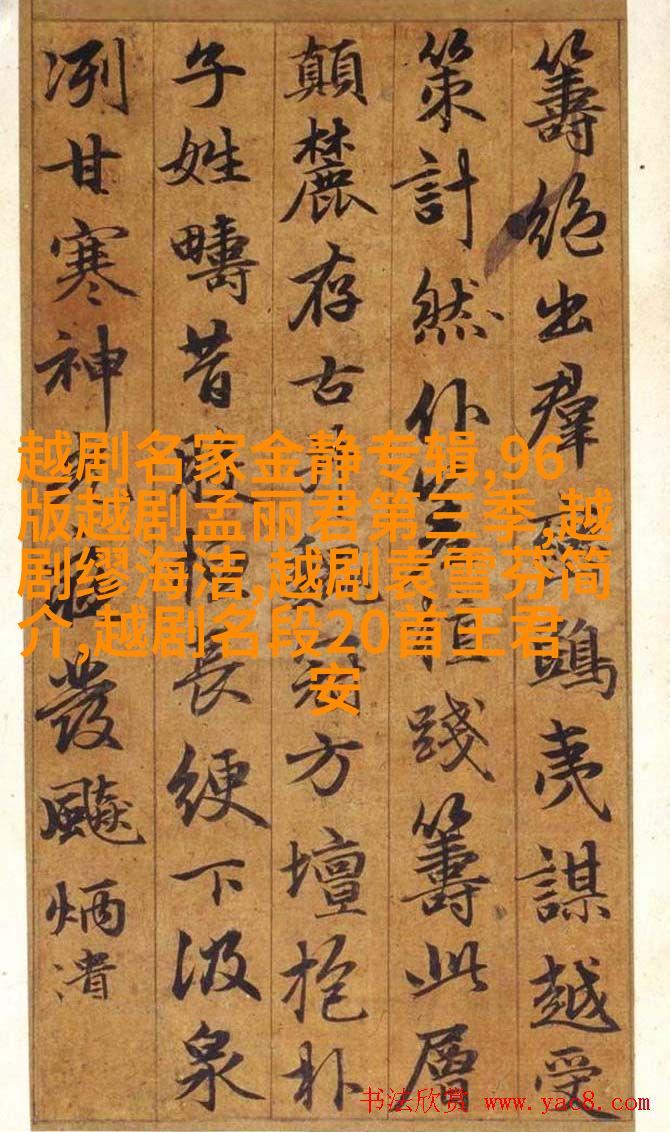 籌絕出羣鴟夷謀越受
策計然踐籌此層
顛麓存古方壇抱朴
子姓疇昔長綆下汲泉
冽甘寒神發飇炳潰
越剧名家金静专辑,96
版越剧孟丽君第三季,越
剧缪海洁,越剧袁雪芬简
介,越剧名段20首王君
安
书法欣赏 www.yac8.com